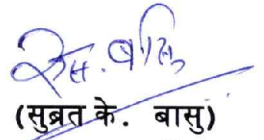 (सुब्रत के. बासु)